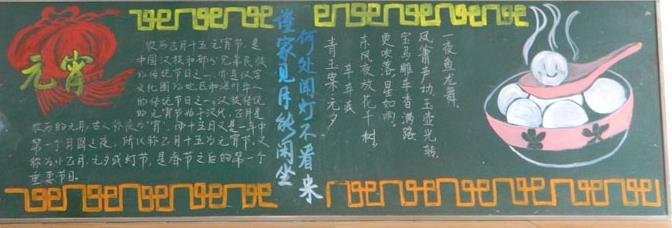 元宵
农历正月十五元宵节,是
中国汉族和部分兄弟民族
的传统节日之一,亦是汉字
文化圈的地区和海外华人
的传统节日之一。汉族传统
的元宵节始于汉代,正月是
农历的元月,古人称夜为“宵”,而十五日又是一年中
第一个月圆之夜,所以称正月十五为元宵节。又
称为小正月、元夕或灯节,是春节之后的第一个
重要节日。
谁家见月能闲坐
何处闻灯不看来
青玉案·元夕
辛弃疾
东风夜放花千树,
更吹落,星如雨。
宝马雕车香满路,
凤箫声动,玉壶光转,
一夜鱼龙舞。